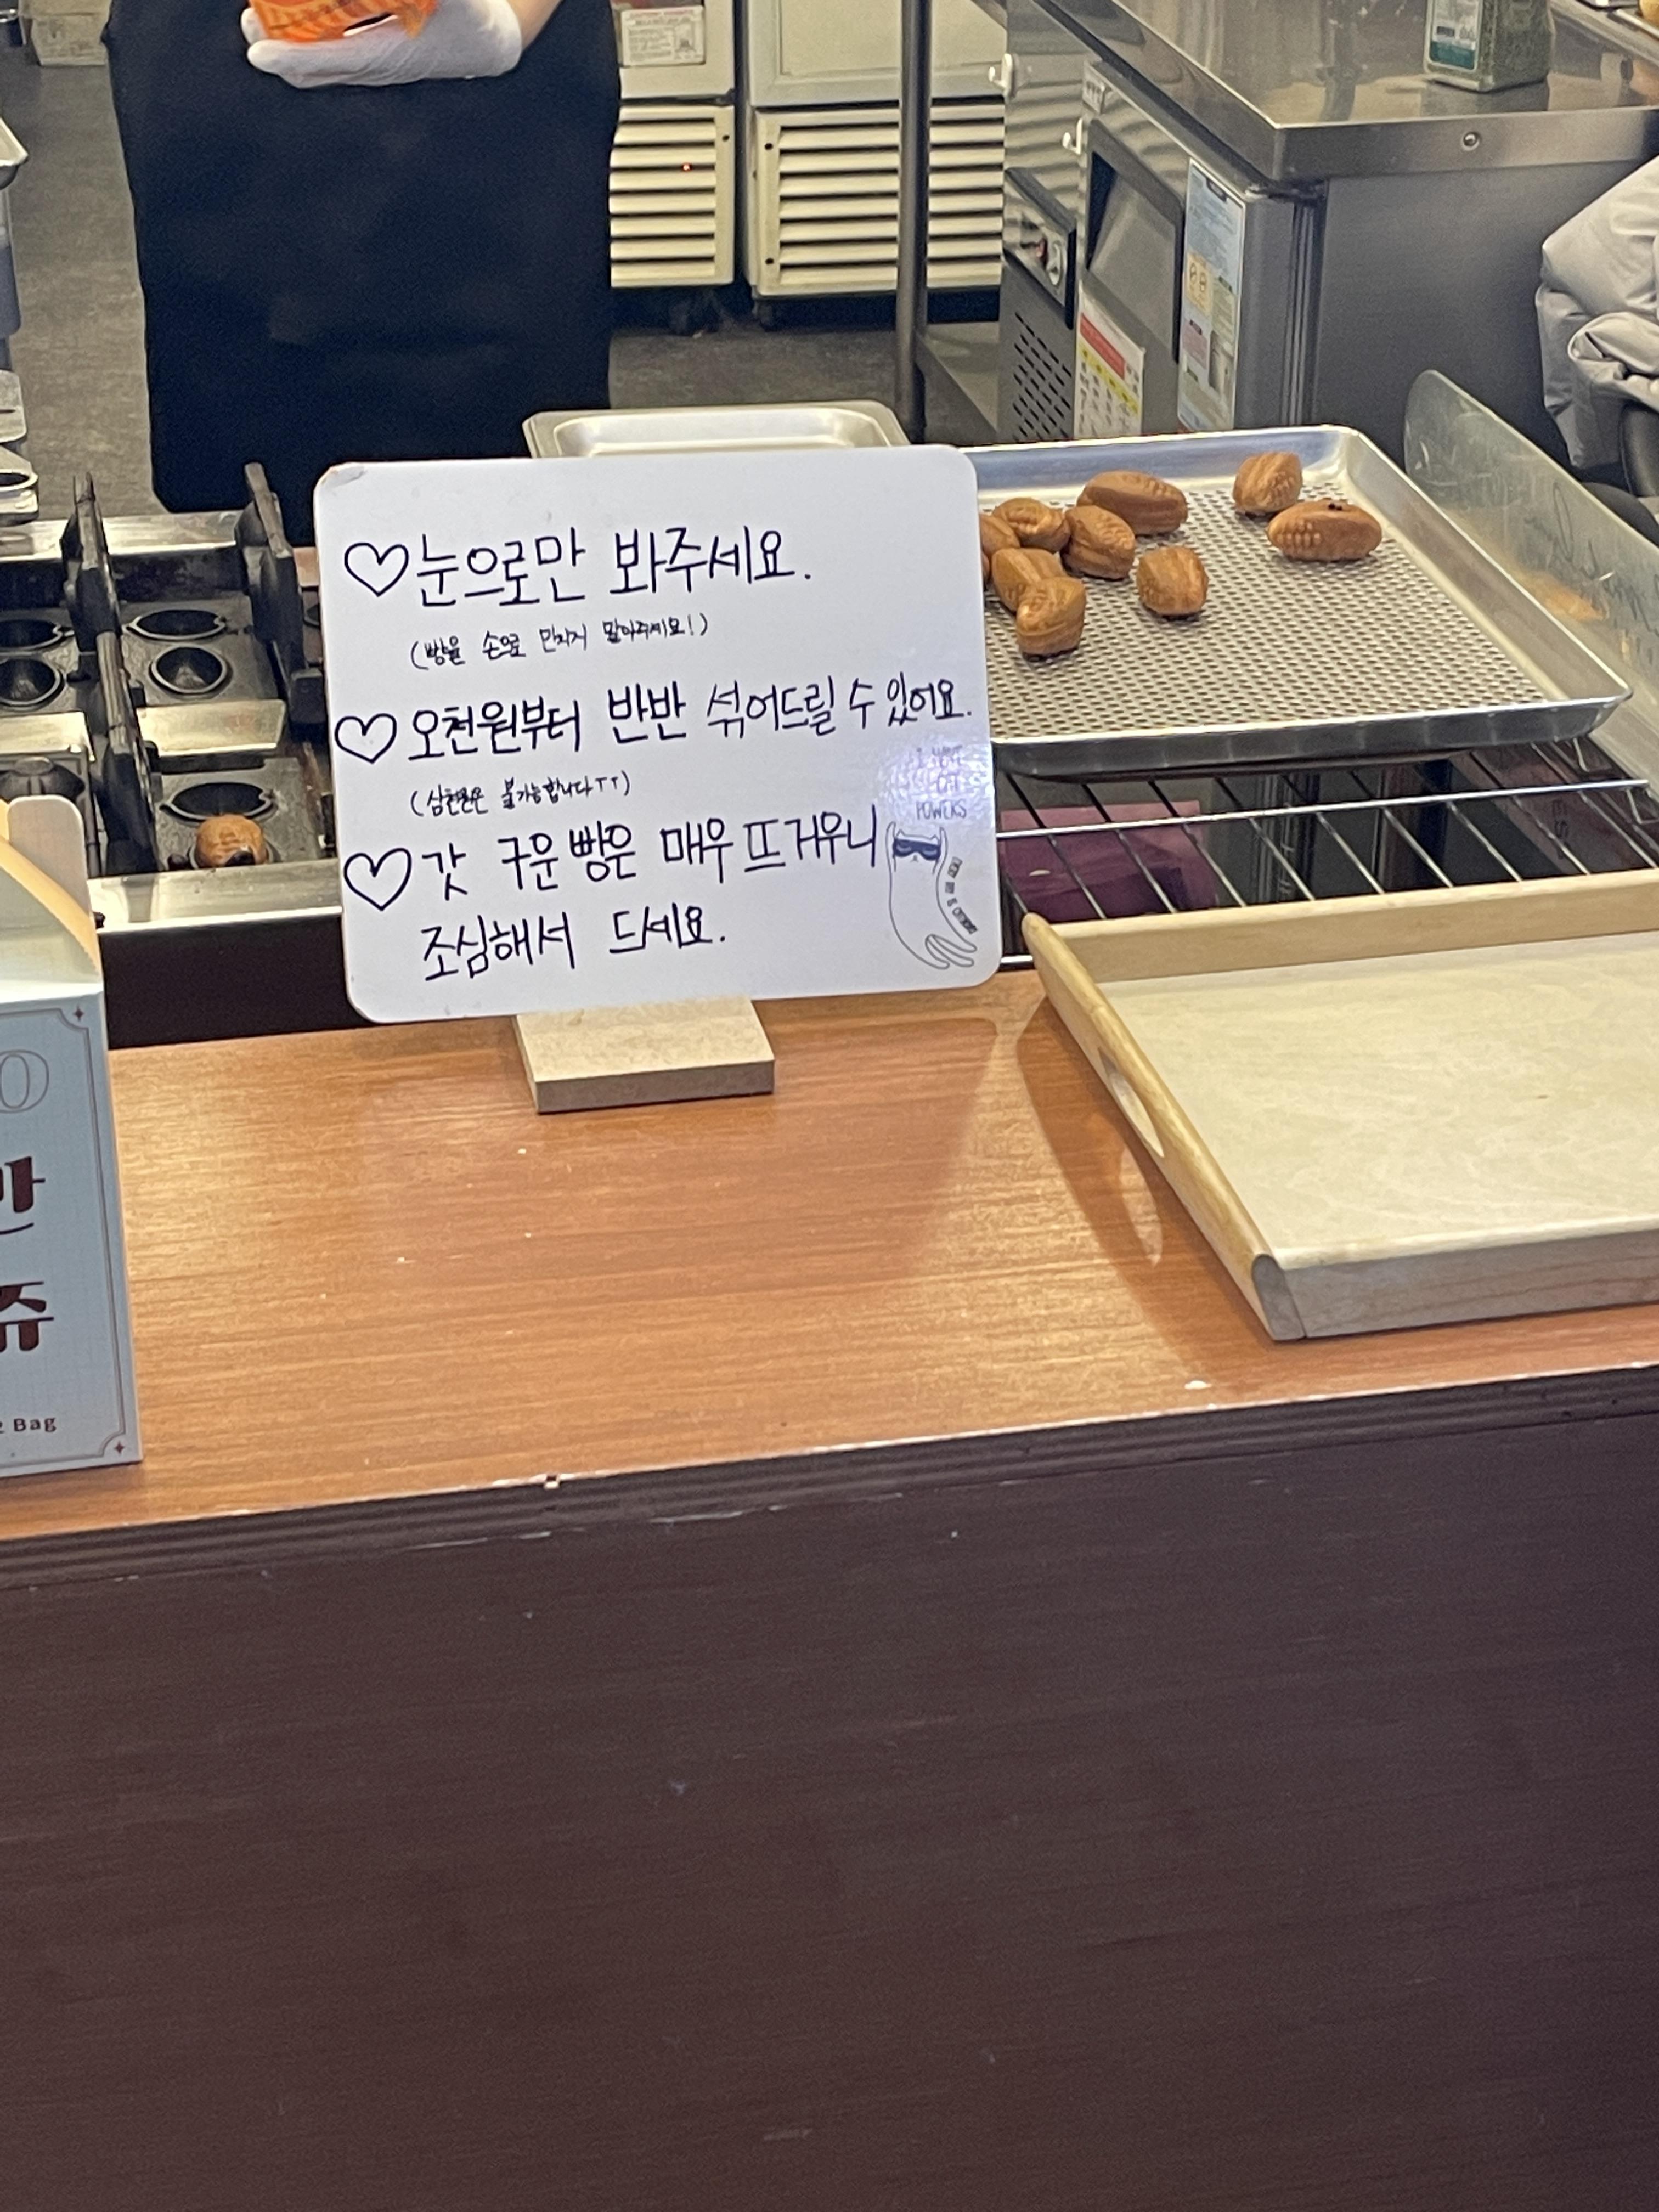 ♡눈으로만 봐주세요.
(빵을 손으로 만지지 말아주세요!)
♡오천원부터 반반 섞어드릴 수 있어요.
(삼천원은 불가능합니다ㅜㅜ)
♡갓 구운 빵은 매우 뜨거우니
조심해서 드세요.
I HAVE
CAT
POWERS
쥬
Bag